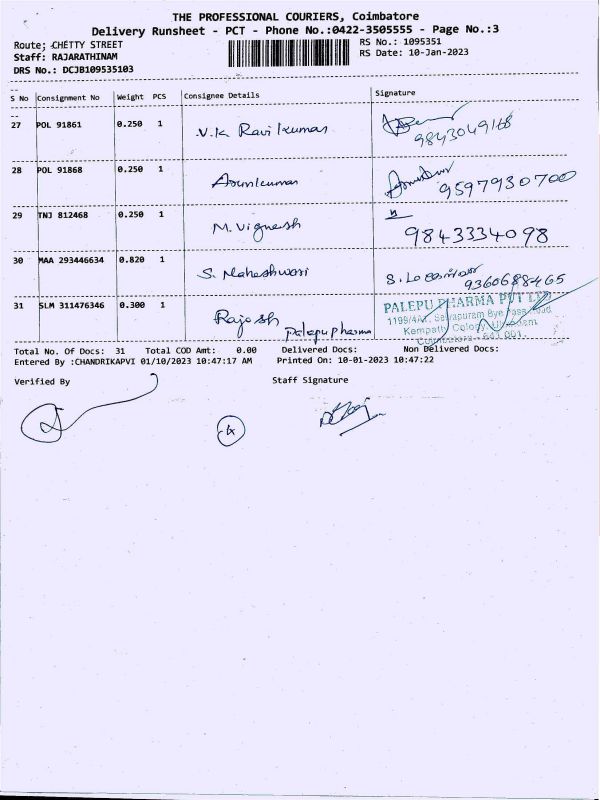 THE PROFESSIONAL COURIERS, Coimbatore
Delivery Runsheet - PCT - Phone No.:0422-3505555 - Page No.:3
Route; CHETTY STREET
RS No.: 1095351
Staff: RAJARATHINAM
RS Date: 10-Jan-2023
DRS No.: DCJB109535103
S No Consignment No Weight PCS Consignee Details Signature
27 POL 91861 0.250 1 V.K Ravikumar 9843049168
28 POL 91868 0.250 1 Arunkumar 9597930700
29 TNJ 812468 0.250 1 M. Vignesh 9843334098
30 MAA 293446634 0.820 1 S. Maheshwari 9360688465
31 SLM 311476346 0.300 1 Rajesh Palepu Pharma
PALEPU PHARMA PVT LTD
Total No. Of Docs: 31 Total COD Amt: 0.00 Delivered Docs: Non Delivered Docs:
Entered By :CHANDRIKAPVI 01/10/2023 10:47:17 AM Printed On: 10-01-2023 10:47:22
Verified By Staff Signature